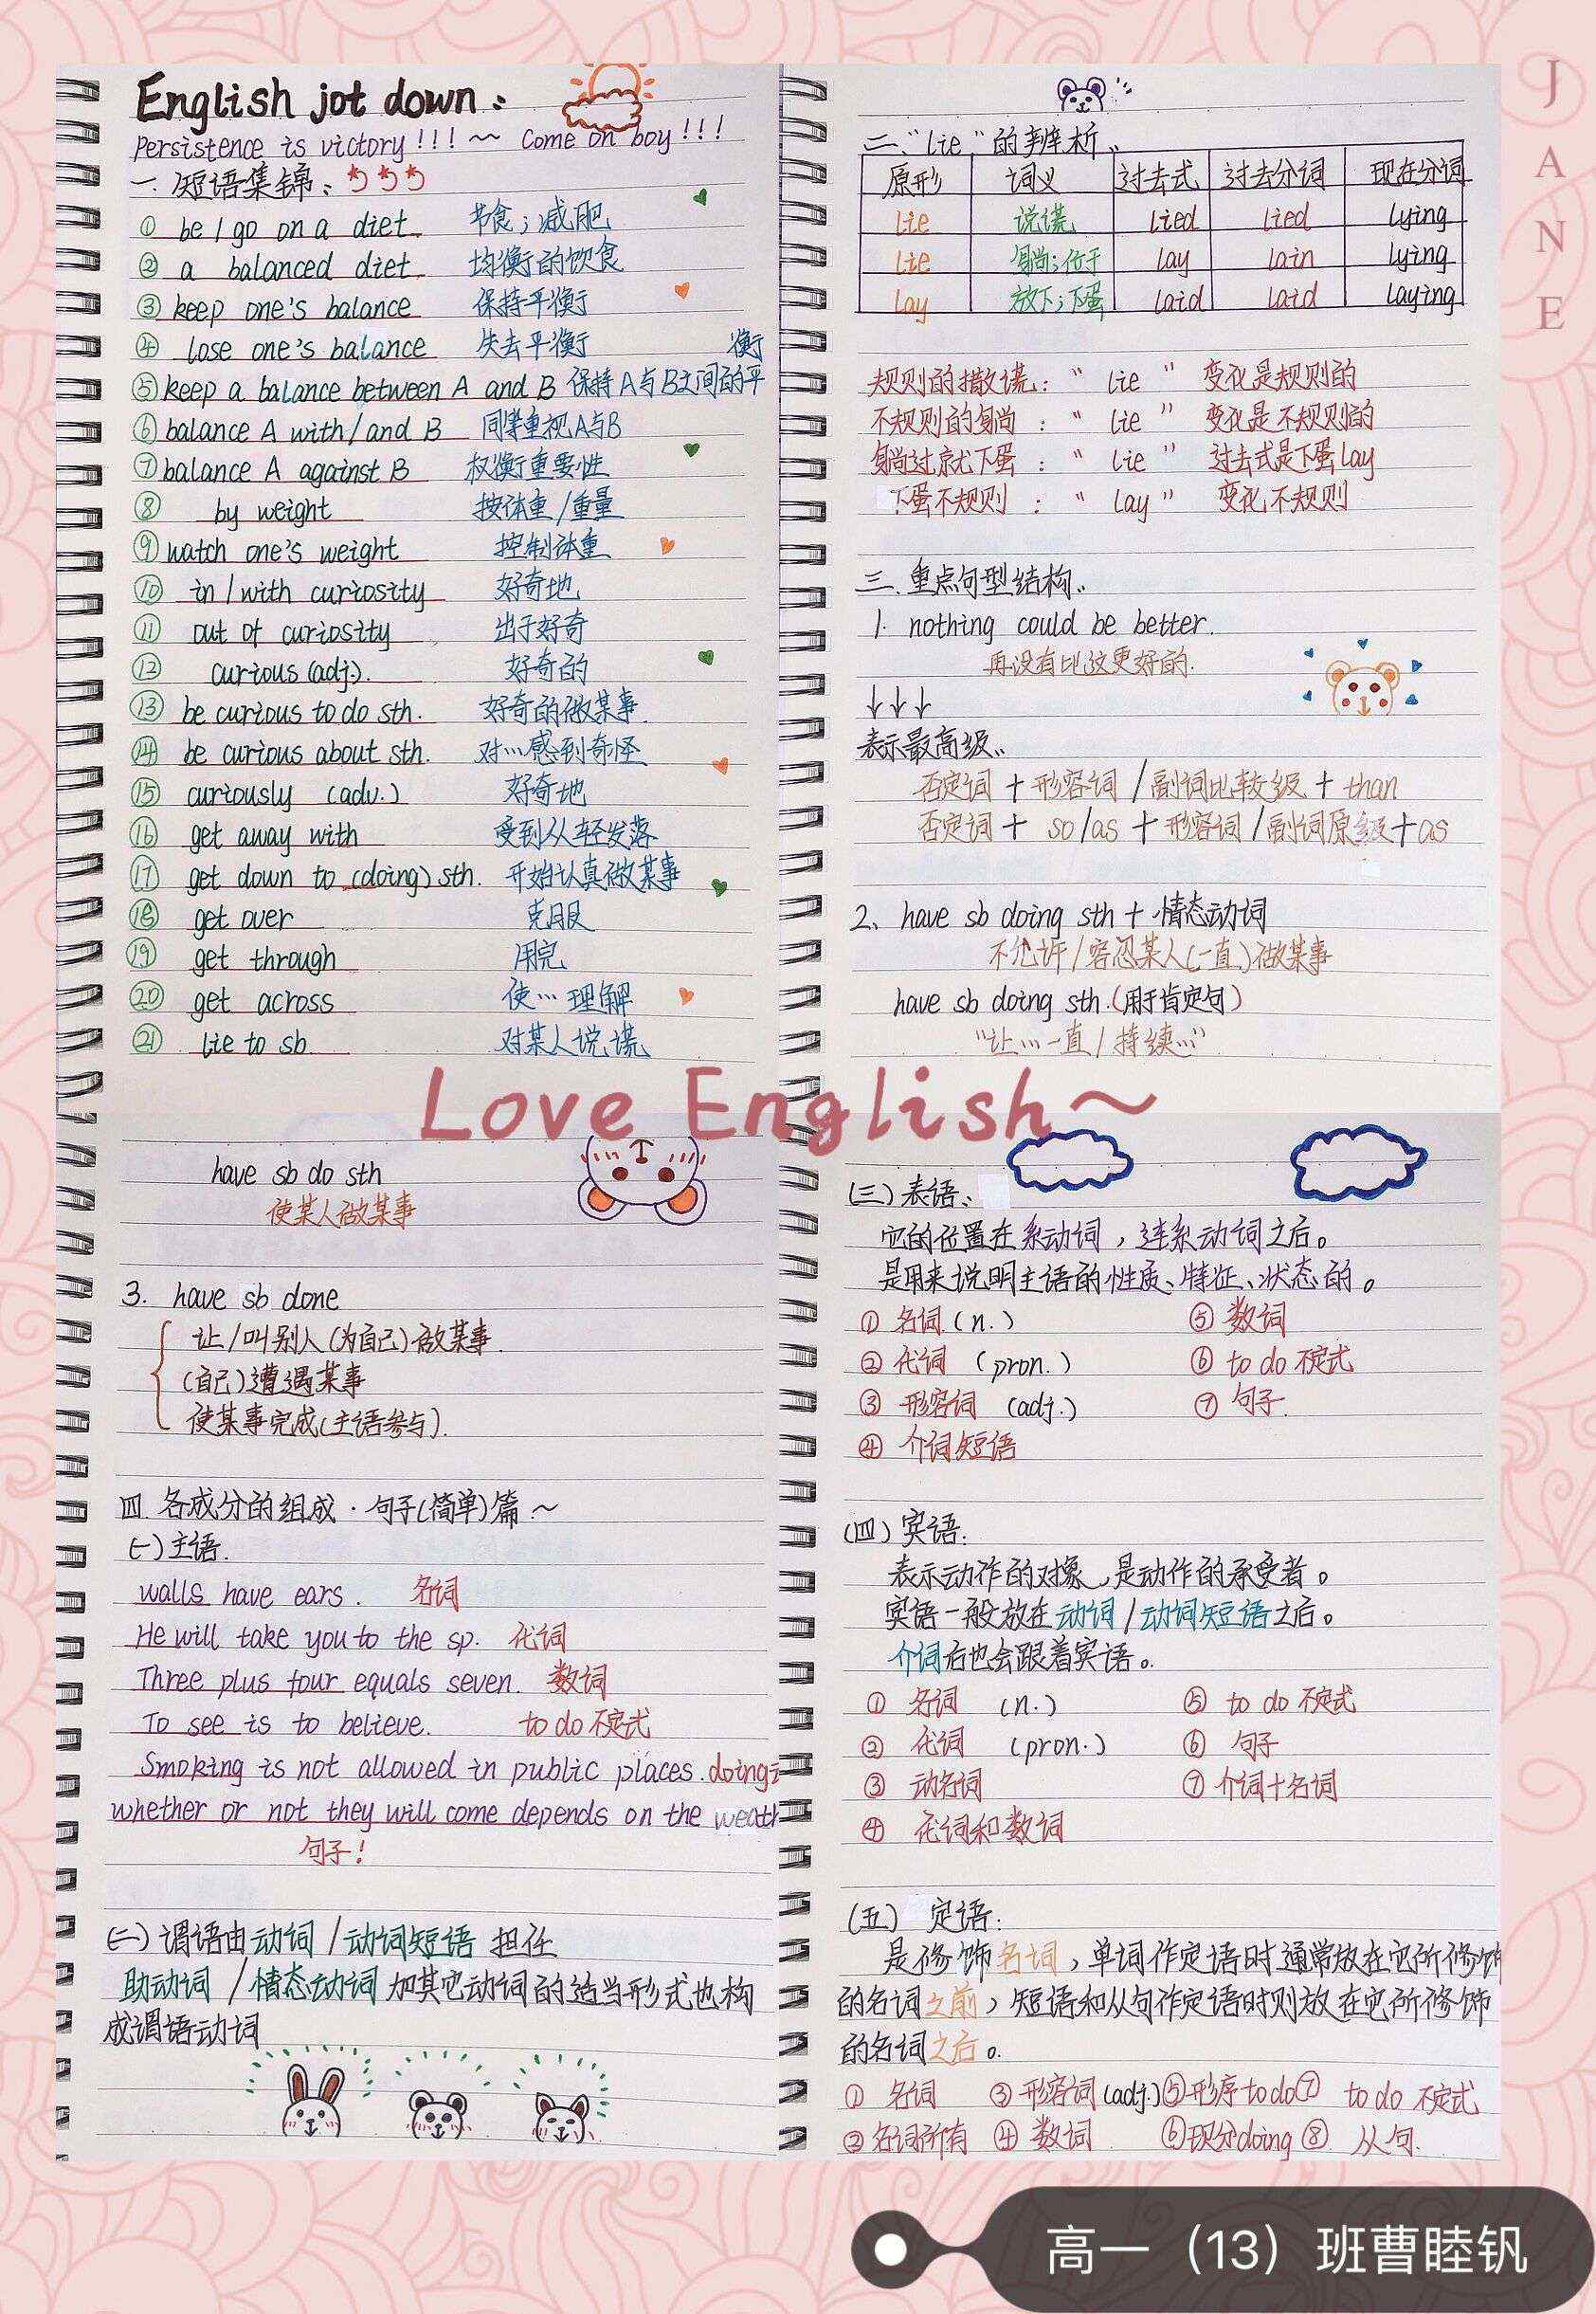 English jot down:
Persistence is victory!!! ~ Come on boy!!!
一. 短语集锦:
① be/go on a diet 节食;减肥
② a balanced diet 均衡的饮食
③ keep one's balance 保持平衡
④ lose one's balance 失去平衡
⑤ keep a balance between A and B 保持A与B之间的平衡
⑥ balance A with/and B 同等重视A与B
⑦ balance A against B 权衡重要性
⑧ by weight 按体重/重量
⑨ watch one's weight 控制体重
⑩ in/with curiosity 好奇地
⑪ out of curiosity 出于好奇
⑫ curious (adj.) 好奇的
⑬ be curious to do sth. 好奇的做某事
⑭ be curious about sth. 对…感到奇怪
⑮ curiously (adv.) 好奇地
⑯ get away with 受到从轻发落
⑰ get down to (doing) sth. 开始认真做某事
⑱ get over 克服
⑲ get through 用完
⑳ get across 使…理解
㉑ lie to sb 对某人说谎
二、"lie"的辨析、
原形 词义 过去式 过去分词 现在分词
lie 说谎 lied lied lying
lie 躺;位于 lay lain lying
lay 放下;下蛋 laid laid laying
规则的撒谎: "lie" 变化是规则的
不规则的躺: "lie" 变化是不规则的
躺过就下蛋: "lie" 过去式是下蛋lay
下蛋不规则: "lay" 变化不规则
三. 重点句型结构..
1. nothing could be better.
再没有比这更好的.
↓↓↓
表示最高级..
否定词+形容词/副词比较级+than
否定词+so/as+形容词/副词原级+as
2、have sb doing sth+情态动词
不允许/容忍某人(一直)做某事
have sb doing sth.(用于肯定句)
"让…一直/持续…"
Love English~
have sb do sth
使某人做某事
3. have sb done
让/叫别人(为自己)做某事.
(自己)遭遇某事
使某事完成(主语参与).
四. 各成分的组成·句子(简单)篇~
(一)主语.
walls have ears. 名词
He will take you to the sp. 代词
Three plus four equals seven. 数词
To see is to believe. to do 不定式
Smoking is not allowed in public places. doing
whether or not they will come depends on the weath
句子!
(二)谓语由动词/动词短语 担任
助动词/情态动词加其它动词的适当形式也构
成谓语动词
(三)表语:
它的位置在系动词,连系动词之后。
是用来说明主语的性质、特征、状态的。
① 名词(n.) ⑤ 数词
② 代词 (pron.) ⑥ to do 不定式
③ 形容词 (adj.) ⑦ 句子.
④ 介词短语
(四)宾语:
表示动作的对象,是动作的承受者。
宾语一般放在动词/动词短语之后。
介词后也会跟着宾语。
① 名词 (n.) ⑤ to do 不定式
② 代词 (pron.) ⑥ 句子
③ 动名词 ⑦ 介词+名词
④ 代词和数词
(五) 定语:
是修饰名词,单词作定语时通常放在它所修饰
的名词之前,短语和从句作定语时则放在它所修饰
的名词之后。
① 名词 ③ 形容词(adj.) ⑤ 形序to do ⑦ to do 不定式
② 名词所有 ④ 数词 ⑥ 现分doing ⑧ 从句.
JANE
高一（13）班曹睦钒